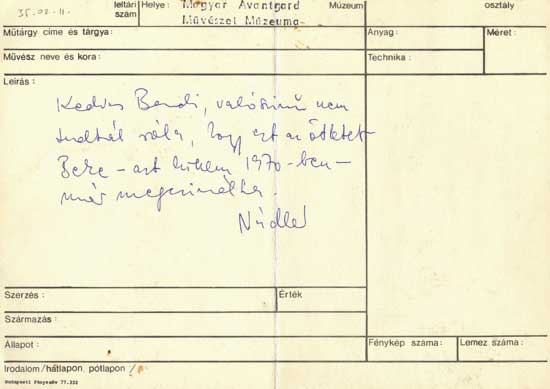 35.02.11. leltári szám Helye: Magyar Avantgard Művészet Múzeuma Múzeum osztály
Műtárgy címe és tárgya: Anyag: Méret:
Művész neve és kora: Technika:
Leírás:
Kedves Bandi, valószinű nem
tudtál róla, hogy ezt az ötletet
Beke – azt hiszem 1970-ben –
már megcsinálta.
Nádler
Szerzés: Érték
Származás:
Állapot: Fénykép száma: Lemez száma:
Irodalom /hátlapon, pótlapon/
Budapesti Fénymáv 77.332